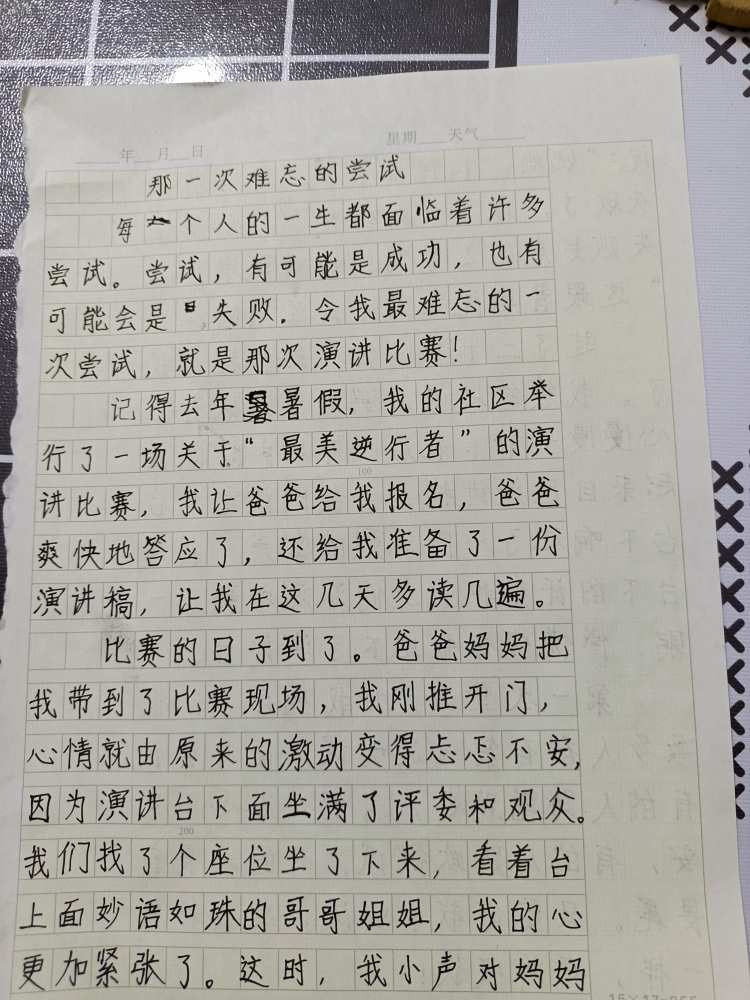 年 月 日 星期 天气
那一次难忘的尝试
每一个人的一生都面临着许多
尝试。尝试，有可能是成功，也有
可能会是失败。令我最难忘的一
次尝试，就是那次演讲比赛！
记得去年暑假，我的社区举
行了一场关于“最美逆行者”的演
100
讲比赛，我让爸爸给我报名，爸爸
爽快地答应了，还给我准备了一份
演讲稿，让我在这几天多读几遍。
比赛的日子到了。爸爸妈妈把
我带到了比赛现场，我刚推开门，
心情就由原来的激动变得忐忑不安，
因为演讲台下面坐满了评委和观众。
200
我们找了个座位坐了下来，看着台
上面妙语如珠的哥哥姐姐，我的心
更加紧张了。这时，我小声对妈妈